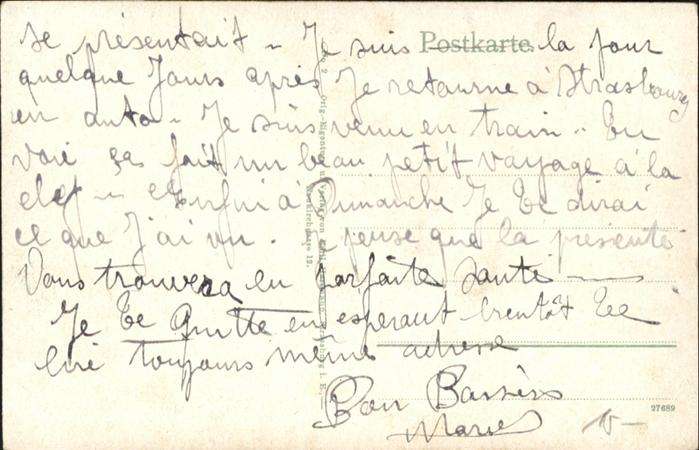 se présentait - Je suis Postkarte la pour
quelque Jours après Je retourne à Strasbourg
en auto - Je suis venu en train - Tu
voie ça fait un beau petit voyage à la
clef - Enfin a Dimanche Je te dirai
ce que J'ai vu. Je pense que la présente
Vous trouvera en parfaite santé
Je te Quitte en esperant bientôt te
lire toujours même adresse
Bon Baisers
27689